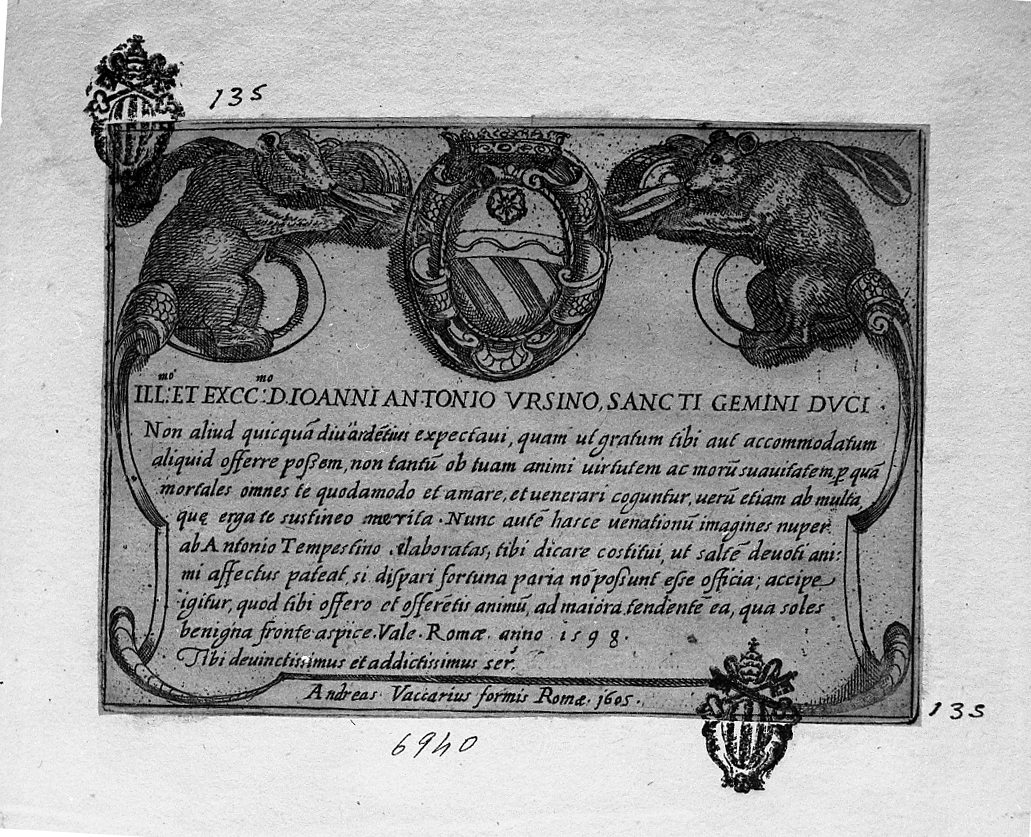 135
ILL.mo ET EXCC.mo D. IOANNI ANTONIO VRSINO, SANCTI GEMINI DVCI.
Non aliud quicquã diu ardẽtius expectaui, quam ut gratum tibi aut accommodatum
aliquid offerre poßem, non tantũ ob tuam animi uirtutem ac morũ suauitatem, ꝑ quã
mortales omnes te quodamodo et amare, et uenerari coguntur, uerũ etiam ab multa,
quę erga te sustineo merita. Nunc autẽ hasce uenationũ imagines nuper
ab Antonio Tempestino elaboratas, tibi dicare costitui, ut saltẽ deuoti ani:
mi affectus pateat, si dispari fortuna paria nõ poßunt eße officia; accipe
igitur, quod tibi offero et offerẽtis animũ, ad maiora tendentẽ ea, qua soles
benigna fronte aspice. Vale. Romæ anno 1598.
Tibi deuinctissimus et addictissimus ser.
Andreas Vaccarius formis Romæ. 1605.
135
6940